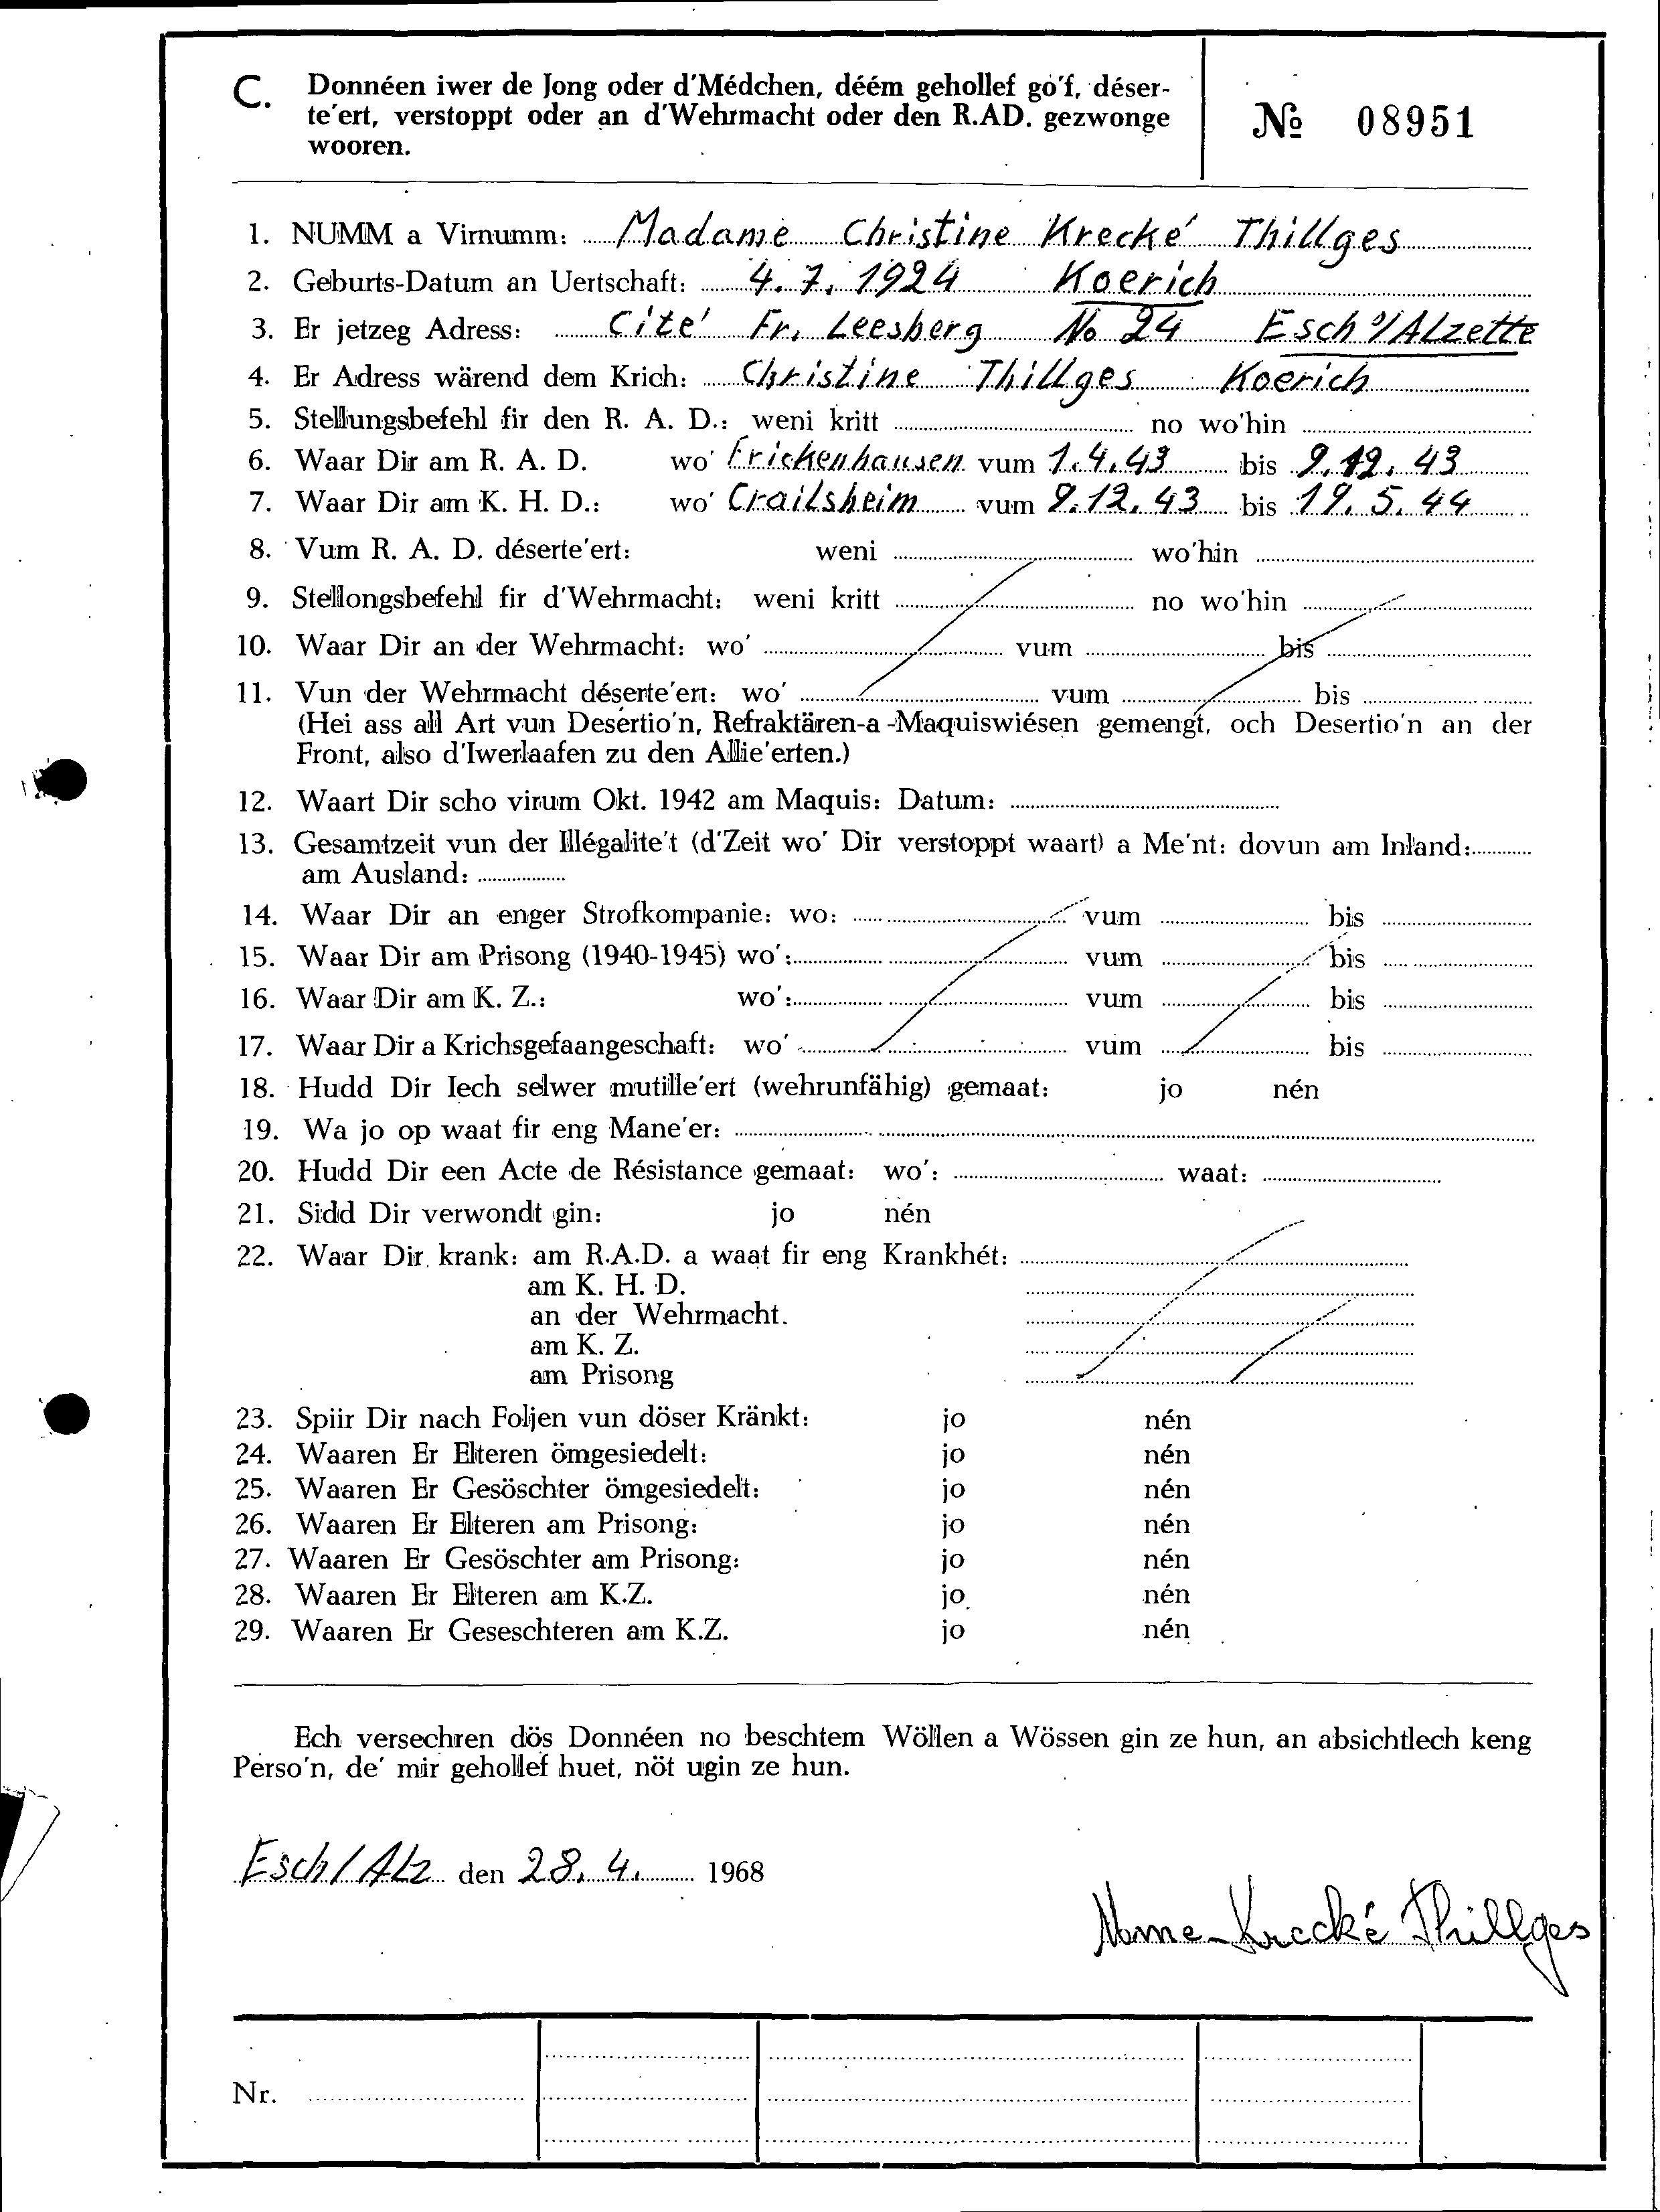 C. Donnéen iwer de Jong oder d'Médchen, déém gehollef go'f, déser-
te'ert, verstoppt oder an d'Wehrmacht oder den R.AD. gezwonge
wooren.
№ 08951
1. NUMM a Virnumm: Madame Christine Krecké Thillges
2. Geburts-Datum an Uertschaft: 4. 7. 1924 Koerich
3. Er jetzeg Adress: Cité Fr. Leesberg No 24 Esch s/Alzette
4. Er Adress wärend dem Krich: Christine Thillges Koerich
5. Stellungsbefehl fir den R. A. D.: weni kritt no wo'hin
6. Waar Dir am R. A. D. wo' Frickenhausen vum 1.4.43 bis 9.12.43
7. Waar Dir am K. H. D.: wo' Crailsheim vum 9.12.43 bis 19.5.44
8. Vum R. A. D. déserte'ert: weni wo'hin
9. Stellongsbefehl fir d'Wehrmacht: weni kritt no wo'hin
10. Waar Dir an der Wehrmacht: wo' vum bis
11. Vun der Wehrmacht déserte'ert: wo' vum bis
(Hei ass all Art vun Desertio'n, Refraktären-a-Maquiswiésen gemengt, och Desertio'n an der
Front, also d'Iwerlaafen zu den Allie'erten.)
12. Waart Dir scho virum Okt. 1942 am Maquis: Datum:
13. Gesamtzeit vun der Illégalite't (d'Zeit wo' Dir verstoppt waart) a Me'nt: dovun am Inland:
am Ausland:
14. Waar Dir an enger Strofkompanie: wo: vum bis
15. Waar Dir am Prisong (1940-1945) wo': vum bis
16. Waar Dir am K. Z.: wo': vum bis
17. Waar Dir a Krichsgefaangeschaft: wo' vum bis
18. Hudd Dir Iech selwer mutille'ert (wehrunfähig) gemaat: jo nén
19. Wa jo op waat fir eng Mane'er:
20. Hudd Dir een Acte de Résistance gemaat: wo': waat:
21. Sidd Dir verwondt gin: jo nén
22. Waar Dir krank: am R.A.D. a waat fir eng Krankhét:
am K. H. D.
an der Wehrmacht.
am K. Z.
am Prisong
23. Spiir Dir nach Foljen vun döser Kränkt: jo nén
24. Waaren Er Elteren ömgesiedelt: jo nén
25. Waaren Er Gesöschter ömgesiedelt: jo nén
26. Waaren Er Elteren am Prisong: jo nén
27. Waaren Er Gesöschter am Prisong: jo nén
28. Waaren Er Elteren am K.Z. jo nén
29. Waaren Er Geseschteren am K.Z. jo nén
Ech versechren dös Donnéen no beschtem Wöllen a Wössen gin ze hun, an absichtlech keng
Perso'n, de' mir gehollef huet, nöt ugin ze hun.
Esch/Alz den 28. 4. 1968
Mme Krecké Thillges
Nr.